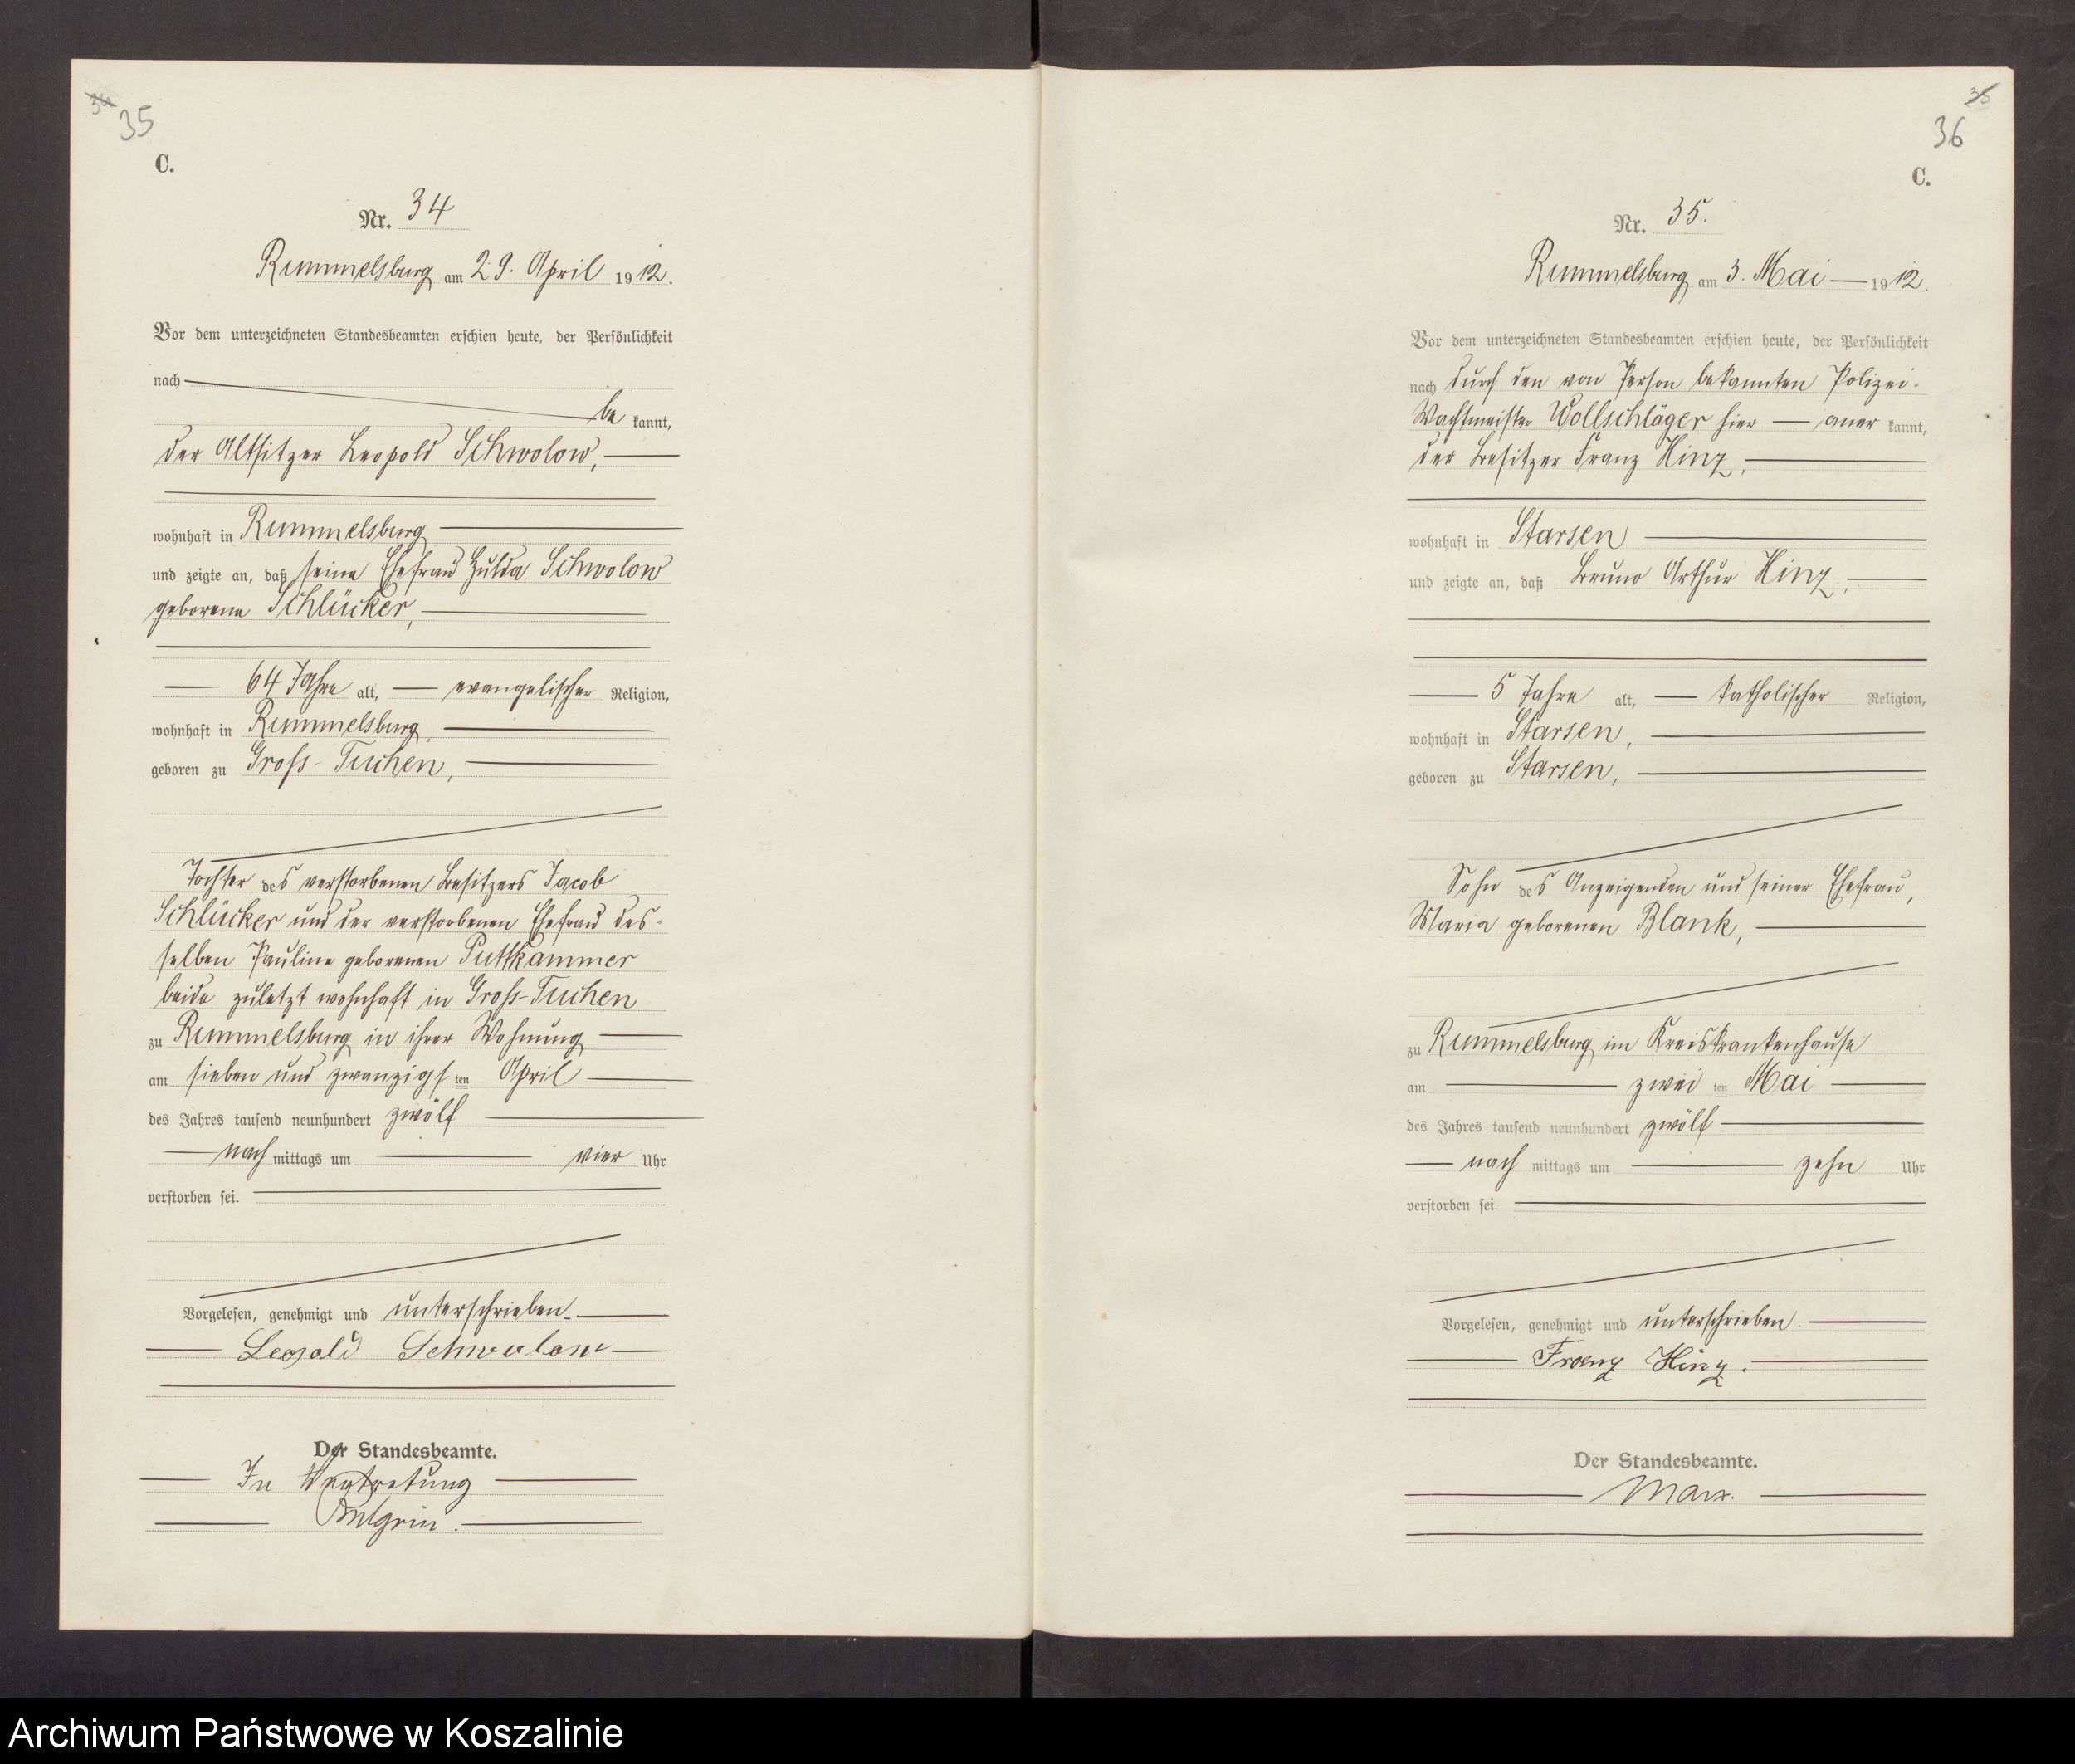 34
35
C.
Nr. 34
Rummelsburg am 29. April 1912.
Vor dem unterzeichneten Standesbeamten erschien heute, der Persönlichkeit
nach
be kannt,
der Altsitzer Leopold Schwolow,
wohnhaft in Rummelsburg
und zeigte an, daß seine Ehefrau Hulda Schwolow
geborene Schlücker,
64 Jahre alt, evangelischer Religion,
wohnhaft in Rummelsburg,
geboren zu Gross-Tuchen,
Tochter des verstorbenen Besitzers Jacob
Schlücker und der verstorbenen Ehefrau des-
selben Pauline geborenen Puttkammer
beide zuletzt wohnhaft in Gross-Tuchen
zu Rummelsburg in ihrer Wohnung
am sieben und zwanzigsten April
des Jahres tausend neunhundert zwölf
nach mittags um vier Uhr
verstorben sei.
Vorgelesen, genehmigt und unterschrieben.
Leopold Schwolow
Der Standesbeamte.
In Vertretung
35
36
C.
Nr. 35.
Rummelsburg am 3. Mai 1912.
Vor dem unterzeichneten Standesbeamten erschien heute, der Persönlichkeit
nach durch den von Person bekannten Polizei-
Wachtmeister Wollschläger hier aner kannt,
der Besitzer Franz Hinz,
wohnhaft in Starsen
und zeigte an, daß Bruno Arthur Hinz,
5 Jahre alt, katholischer Religion,
wohnhaft in Starsen,
geboren zu Starsen,
Sohn des Anzeigenden und seiner Ehefrau,
Maria geborenen Blank,
zu Rummelsburg im Kreiskrankenhause
am zwei ten Mai
des Jahres tausend neunhundert zwölf
nach mittags um zehn Uhr
verstorben sei.
Vorgelesen, genehmigt und unterschrieben.
Franz Hinz.
Der Standesbeamte.
Marx.
Archiwum Państwowe w Koszalinie